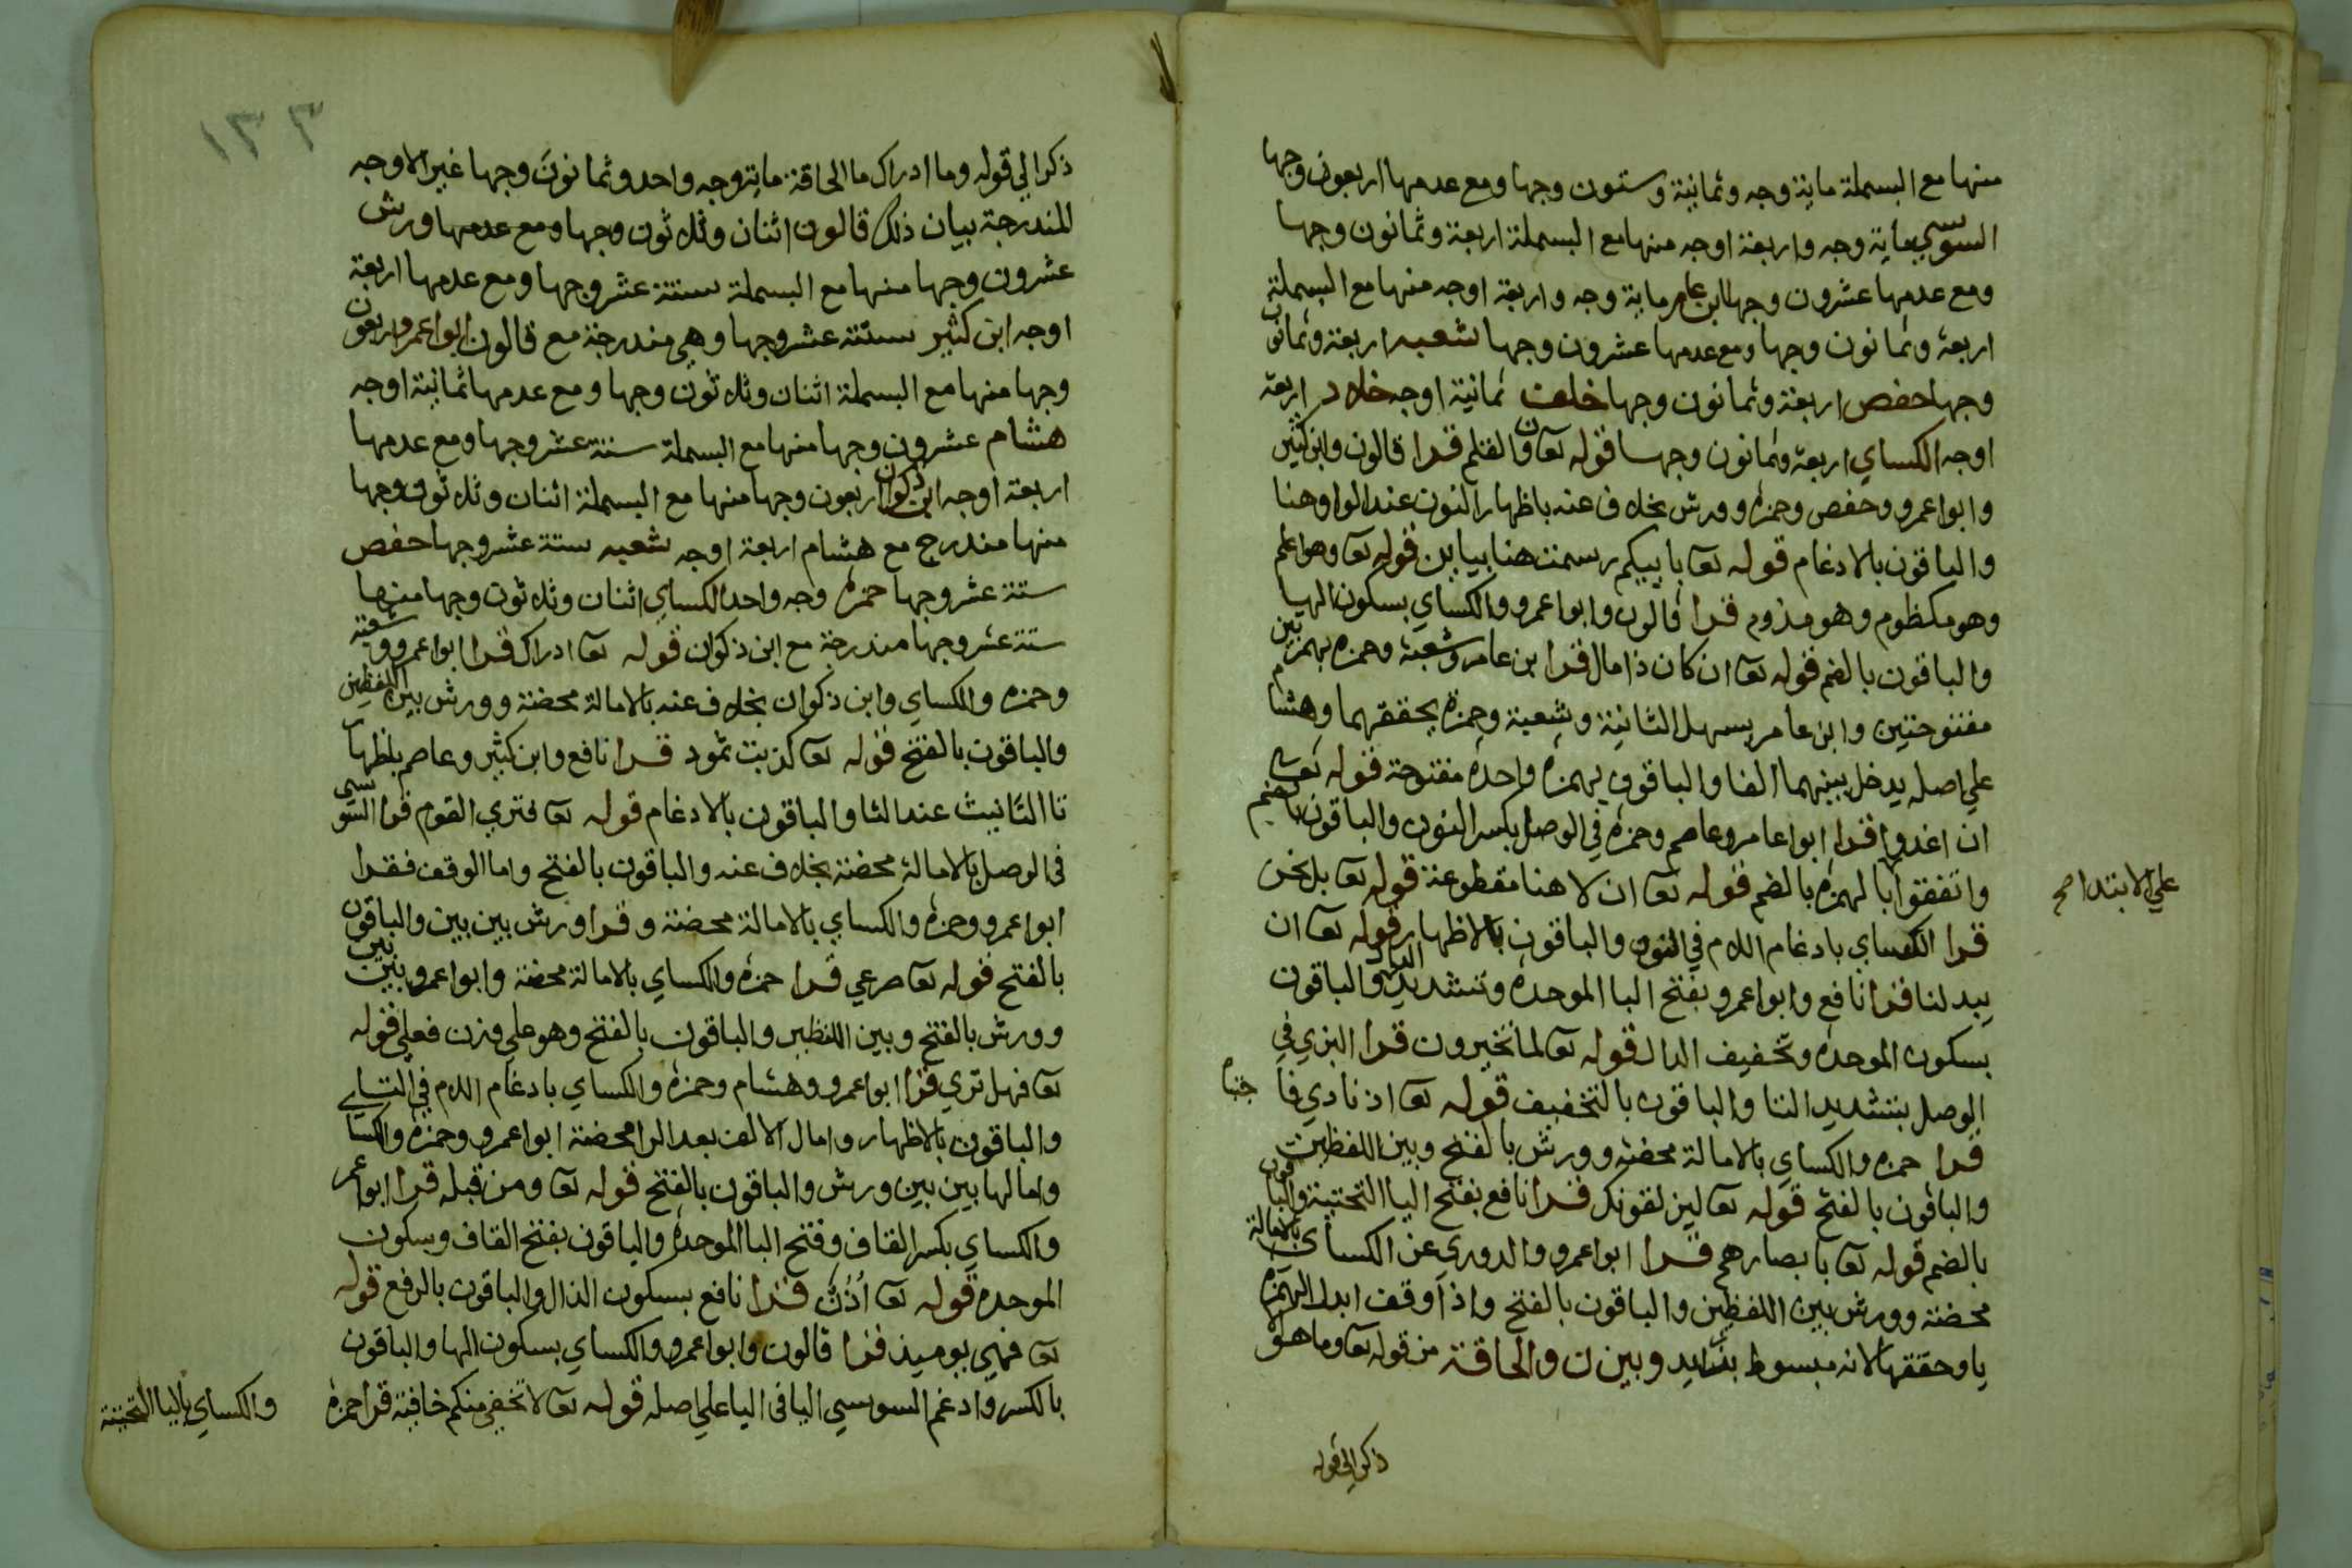 منها مع البسملة ماية وجه وثمانية وستون وجها ومع عدمها اربعون وجها
السوسي ماية وجه واربعة اوجه منها مع البسملة اربعة وثمانون وجها
ومع عدمها عشرون وجها ابن عامر ماية وجه واربعة اوجه منها مع البسملة
اربعة وثمانون وجها ومع عدمها عشرون وجها شعبه اربعة وثمانون
وجها حفص اربعة وثمانون وجها خلف ثمانية اوجه خلاد اربعة
اوجه الكساي اربعة وثمانون وجها قوله تعا ن والقلم قرا قالون وابن كثير
وابوا عمرو وحفص وحمزه وورش بخلاف عنه باظهار النون عند الواو هنا
والباقون بالادغام قوله تعا باييكم رسمت هنا بيايين قوله تعا وهو اعلم
وهو مكظوم وهو مذموم قرا قالون وابوا عمرو والكساي بسكون الها
والباقون بالضم قوله تعا ان كان ذا مال قرا بن عامر وشعبة وحمزه بهمزتين
مفتوحتين وابن عامر يسهل الثانية وشعبة وحمزة يحققهما وهشام
علي اصله يدخل بينهما الفا والباقون بهمزه واحده مفتوحة قوله تعا
ان اغدوا قرا ابوا عامر وعاصم وحمزه في الوصل بكسر النون والباقون بالضم
واتفقوا بالهمزه بالضم قوله تعا ان لا هنا مقطوعة قوله تعا بل نحن
علي الابتدا صح
قرا الكساي بادغام اللام في النون والباقون بالاظهار قوله تعا ان
يبدلنا قرا نافع وابوا عمرو بفتح البا الموحده وتشديد الدال والباقون
بسكون الموحده وتخفيف الدال قوله تعا لما تخيرون قرا البزي في
الوصل بتشديد التا والباقون بالتخفيف قوله تعا اذ نادي فا
جتباه
قرا حمزه والكساي بالامالة محضة وورش بالفتح وبين اللفظين
والباقون بالفتح قوله تعا ليزلقونك قرا نافع بفتح اليا التحتية والباقون
بالضم قوله تعا بابصارهم قرا ابوا عمرو والدوري عن الكساي بالامالة
محضة وورش بين اللفظين والباقون بالفتح واذا وقف ابدل الهمزه
يا وحققها لانه مبسوط بزايد وبين ن والحاقة من قوله تعا وما هو الا
ذكر الي قوله
١٣٣
ذكر الي قوله وما ادراك ما الحاقة ماية وجه واحد وثمانون وجها غير الاوجه
المندرجة بيان ذلك قالون اثنان وثلاثون وجها ومع عدمها ورش
عشرون وجها منها مع البسملة ستة عشر وجها ومع عدمها اربعة
اوجه ابن كثير ستة عشر وجها وهي مندرجة مع قالون ابوا عمرو اربعون
وجها منها مع البسملة اثنان وثلاثون وجها ومع عدمها ثمانية اوجه
هشام عشرون وجها منها مع البسملة ستة عشر وجها ومع عدمها
اربعة اوجه ابن ذكوان اربعون وجها منها مع البسملة اثنان وثلاثون وجها
منها مندرج مع هشام اربعة اوجه شعبه ستة عشر وجها حفص
ستة عشر وجها حمزه وجه واحد الكساي اثنان وثلاثون وجها منها
ستة عشر وجها مندرجة مع ابن ذكوان قوله تعا ادراك قرا ابوا عمرو وشعبة
وحمزه والكساي وابن ذكوان بخلاف عنه بالامالة محضة وورش بين اللفظين
والباقون بالفتح قوله تعا كذبت ثمود قرا نافع وابن كثير وعاصم باظهار
تا التانيث عند الثا والباقون بالادغام قوله تعا فتري القوم قرا السوسي
في الوصل بالامالة محضة بخلاف عنه والباقون بالفتح واما الوقف فقرا
ابوا عمرو وحمزه والكساي بالامالة محضة وقرا ورش بين بين والباقون
بالفتح قوله تعا صرعي قرا حمزه والكساي بالامالة محضة وابوا عمرو بين بين
وورش بالفتح وبين اللفظين والباقون بالفتح وهو علي وزن فعلي قوله
تعا فهل تري قرا ابوا عمرو وهشام وحمزه والكساي بادغام اللام في التا
والباقون بالاظهار وامال الالف بعد الرا محضة ابوا عمرو وحمزه والكساي
وامالها بين بين ورش والباقون بالفتح قوله تعا ومن قبله قرا ابوا عمر
والكساي بكسر القاف وفتح البا الموحده والباقون بفتح القاف وسكون
الموحده قوله تعا اُذُنٌ قرا نافع بسكون الذال والباقون بالرفع قوله
تعا فهي يوميذ قرا قالون وابوا عمرو والكساي بسكون الها والباقون
بالكسر وادغم السوسي اليا في اليا علي اصله قوله تعا لا تخفي منكم خافية قرا حمزه
والكساي باليا التحتية